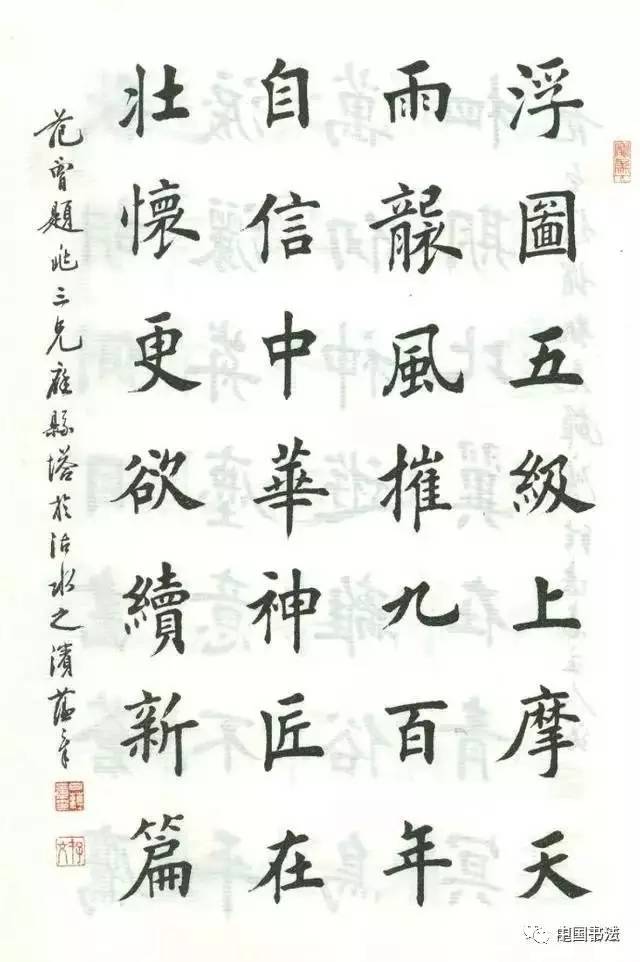 浮圖五級上摩天
雨龑風摧九百年
自信中華神匠在
壯懷更欲續新篇
范曾題 三兄應縣塔於沽水之濱
中国书法